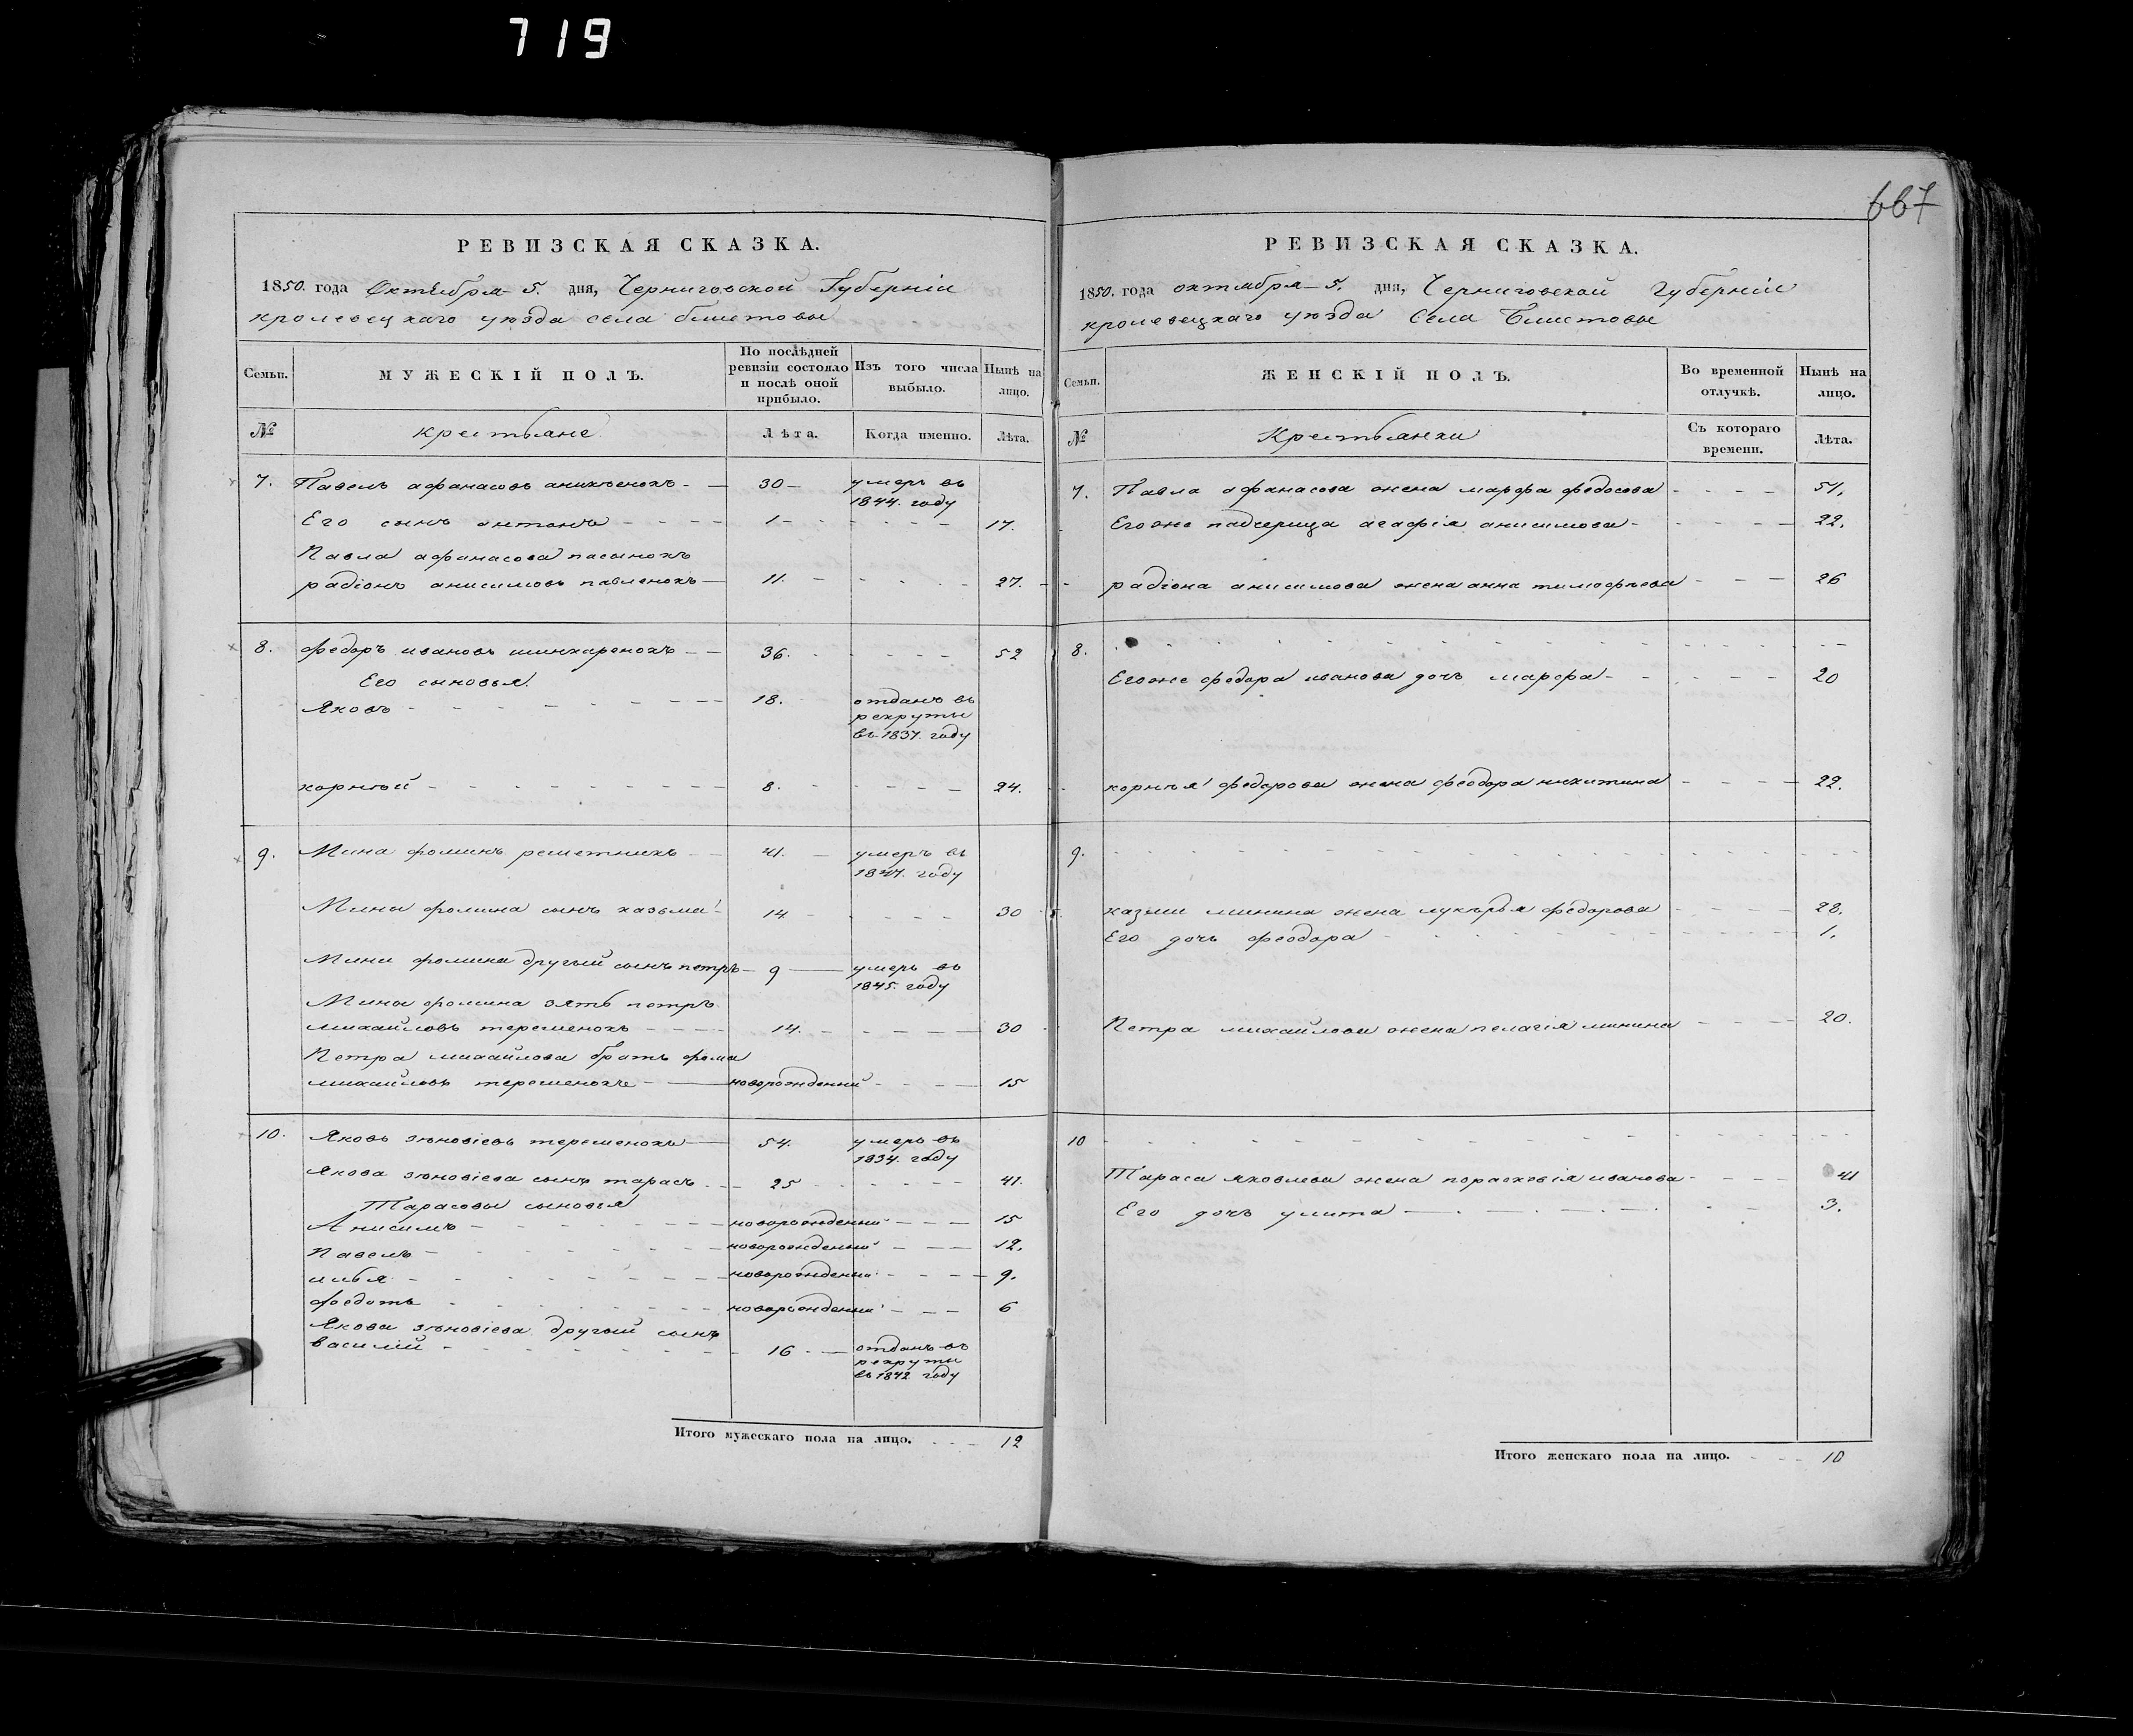 719
667
РЕВИЗСКАЯ СКАЗКА.
1850. года Октября 5. дня, Черниговской Губерніи
кролевецкаго уѣзда села блистовы
Семьи. МУЖЕСКІЙ ПОЛЪ. По послѣдней ревизіи состояло и послѣ оной прибыло. Изъ того числа выбыло. Нынѣ на лицо.
№ крестьяне Лѣта. Когда именно. Лѣта.
7. Павелъ афанасовъ 30 умеръ въ
1844. году
Его сынъ антонъ 1 17.
Павла афанасова пасынокъ
радіонъ анисимовъ павленокъ 11. 27.
8. федоръ ивановъ шинкаренокъ 36. 52
Его сыновья.
Яковъ 18. отданъ въ
рекруты
въ 1837. году
корнѣй 8. 24.
9. Мина фоминъ решетникъ 41. умеръ въ
1847. году
Мины фомина сынъ казьма 14 30
Мины фомина другый сынъ петръ 9 умеръ въ
1845. году
Мины фомина зять петръ
михайловъ терешенокъ 14. 30
Петра михайлова братъ фома
михайловъ терешенокъ новорожденный 15
10. Яковъ зѣновіевъ терешенокъ 54. умеръ въ
1834. году
Якова зѣновіева сынъ тарасъ 25 41.
Тарасовы сыновья
Анисимъ новорожденный 15
Павелъ новорожденный 12.
илья новорожденный 9.
федотъ новорожденный 6
Якова зѣновіева другый сынъ
василій 16 отданъ въ
рекруты
въ 1842 году
Итого мужескаго пола на лицо. 12
РЕВИЗСКАЯ СКАЗКА.
1850. года октября 5. дня, Черниговской Губерніи
кролевецкаго уѣзда Села Блистовы
Семьи. ЖЕНСКІЙ ПОЛЪ. Во временной отлучкѣ. Нынѣ на лицо.
№ Крестьянки Съ котораго времени. Лѣта.
7. Павла афанасова жена марфа федосова 51.
Егоже падчерица агафія анисимова 22.
радіона анисимова жена анна тимофѣева 26
8.
Егоже федора иванова дочь марфа 20
корнѣя федорова жена феодора никитина 22.
9.
казми минина жена лукѣрья федорова 28.
Его дочь феодора 1.
Петра михайлова жена пелагія минина 20.
10
Тараса яковлева жена порасковія иванова 41
Его дочь улита 3.
Итого женскаго пола на лицо. 10